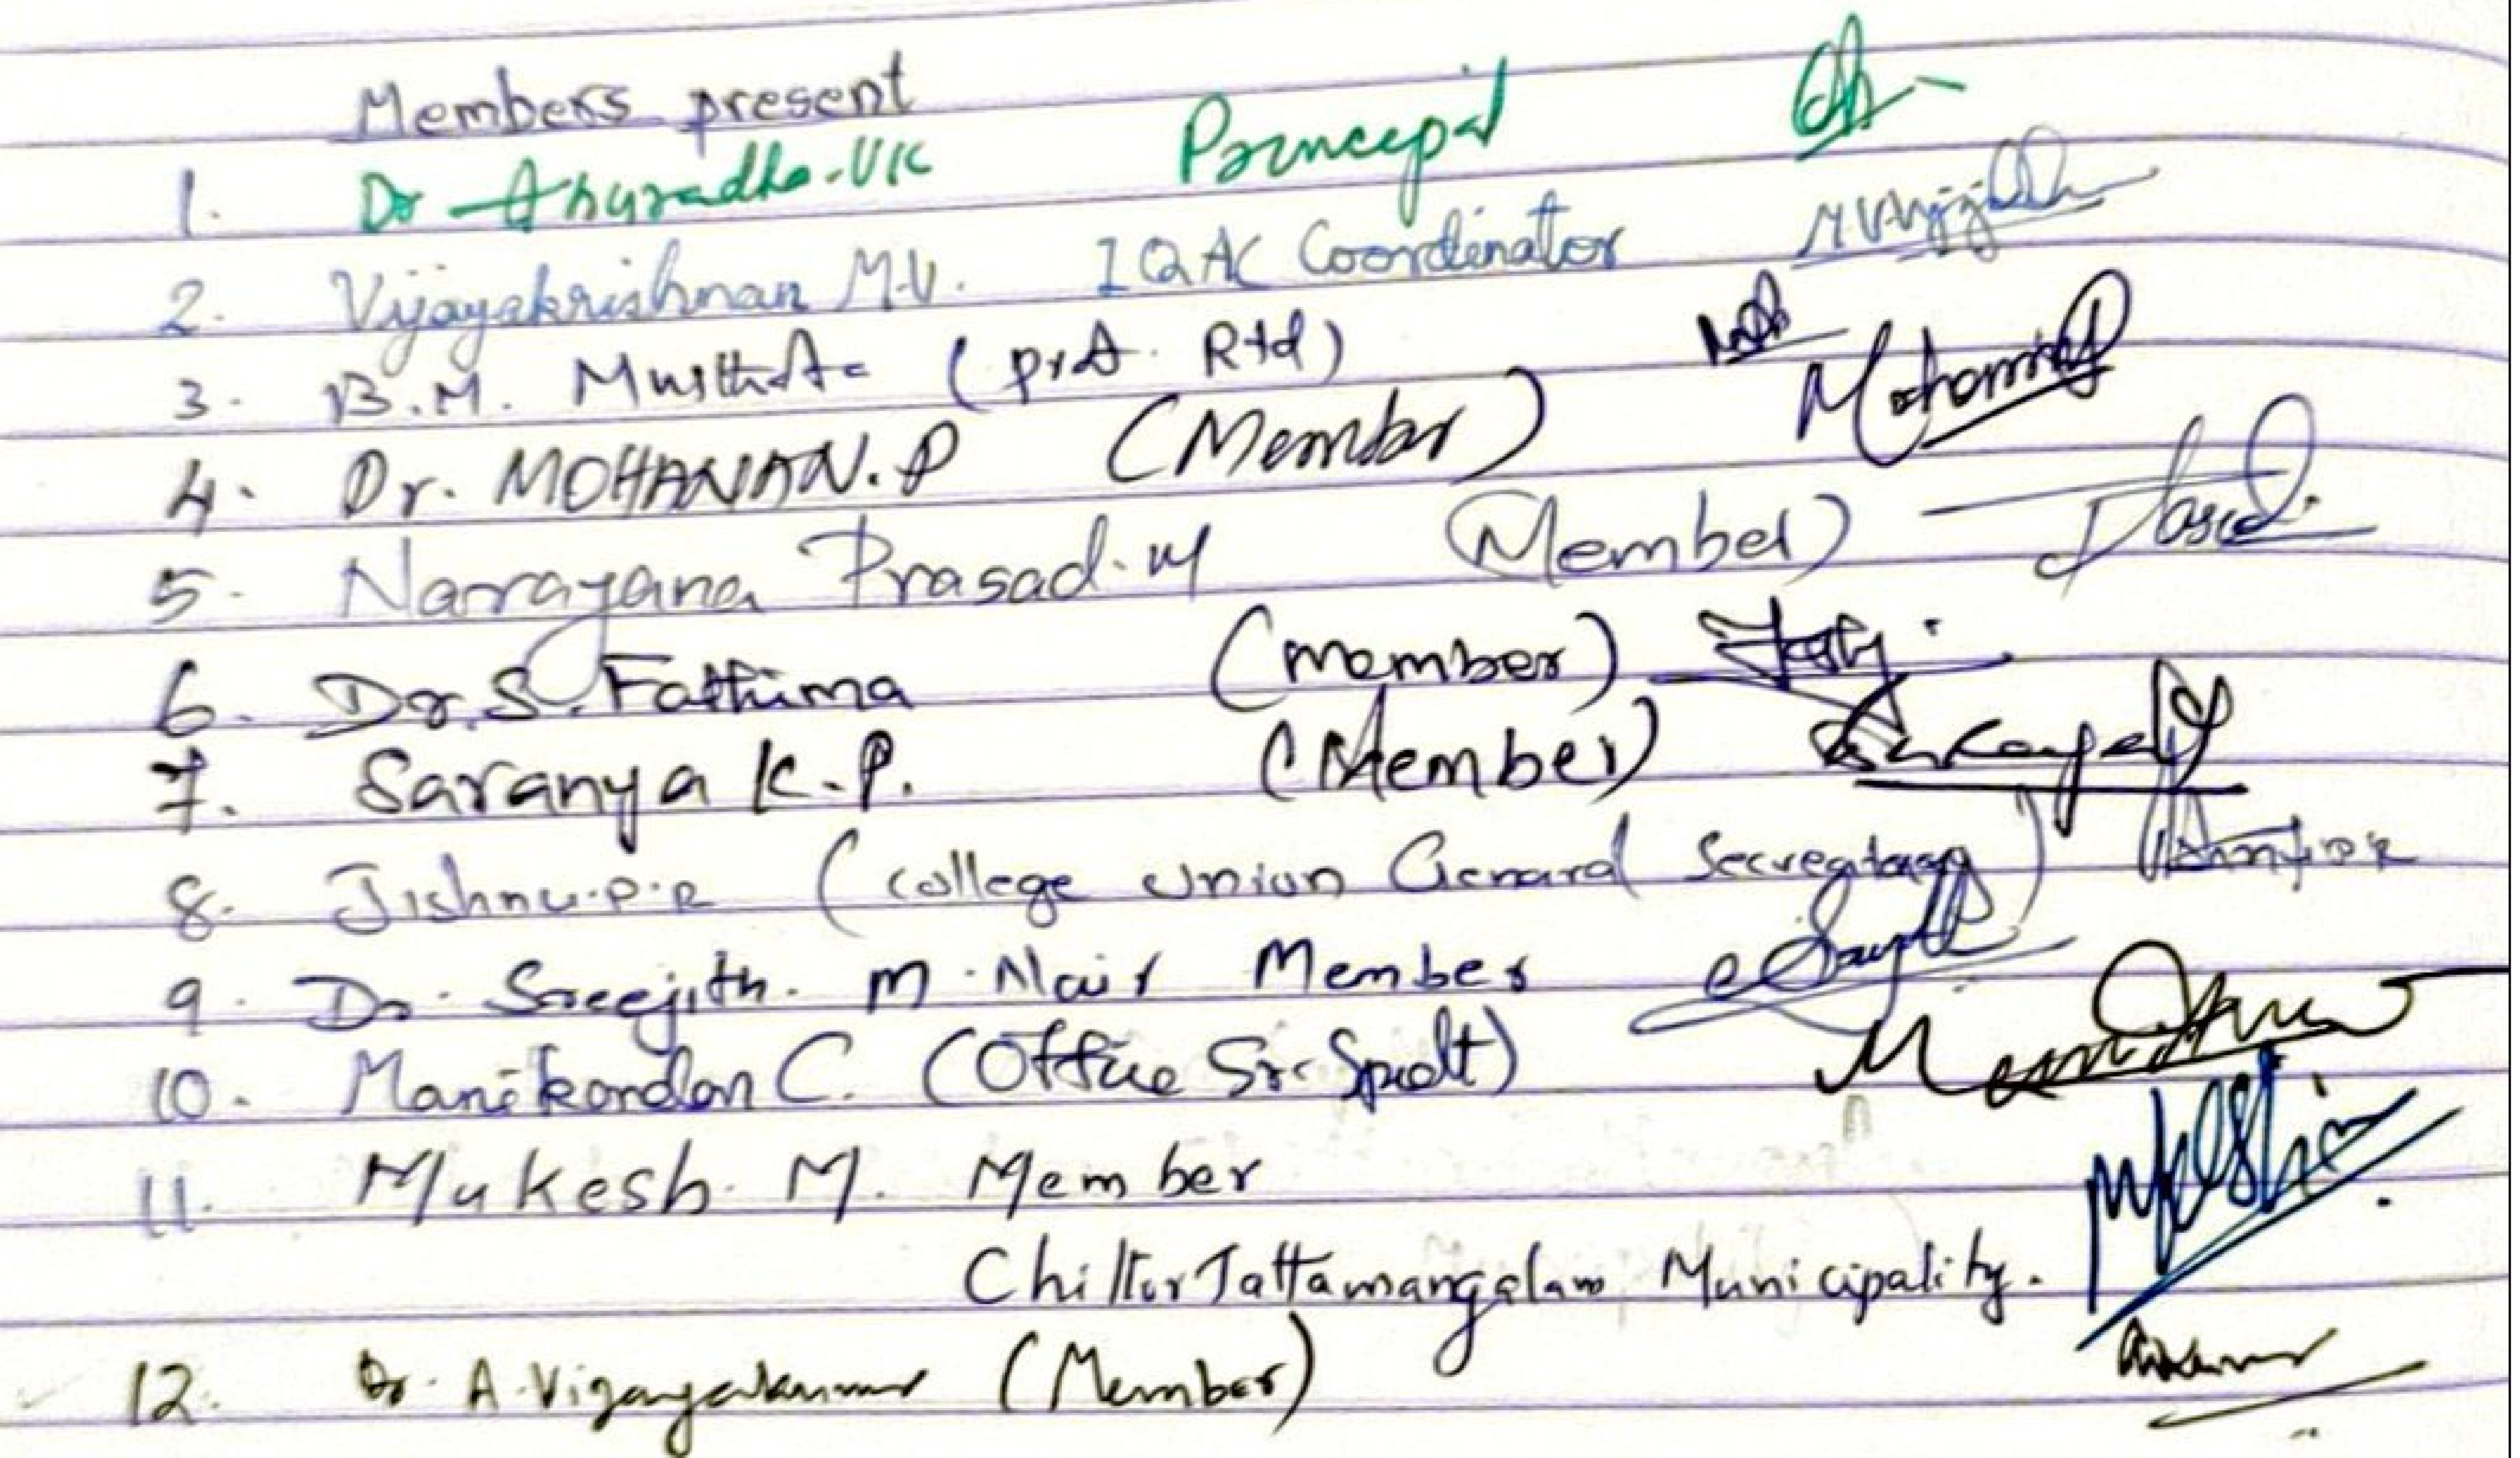 Members present
1. Dr Anuradha.VK Principal
2. Vijayakrishnan M.V. IQAC Coordinator
3. B.M. Musthafa ( Rtd)
4. Dr. MOHANAN.P (Member)
5. Narayana Prasad.M (Member)
6. Dr.S.Fathima (member)
7. Saranya K.P. (Member)
8. Jishnu.P.R (college union General Secregtary)
9. Dr. Sreejith. M.Nair Member
10. Manikandan C. (Office Sr. Supdt)
11. Mukesh. M. Member
Chittur Tattamangalam Municipality.
12. Dr. A.Vijayakumar (Member)